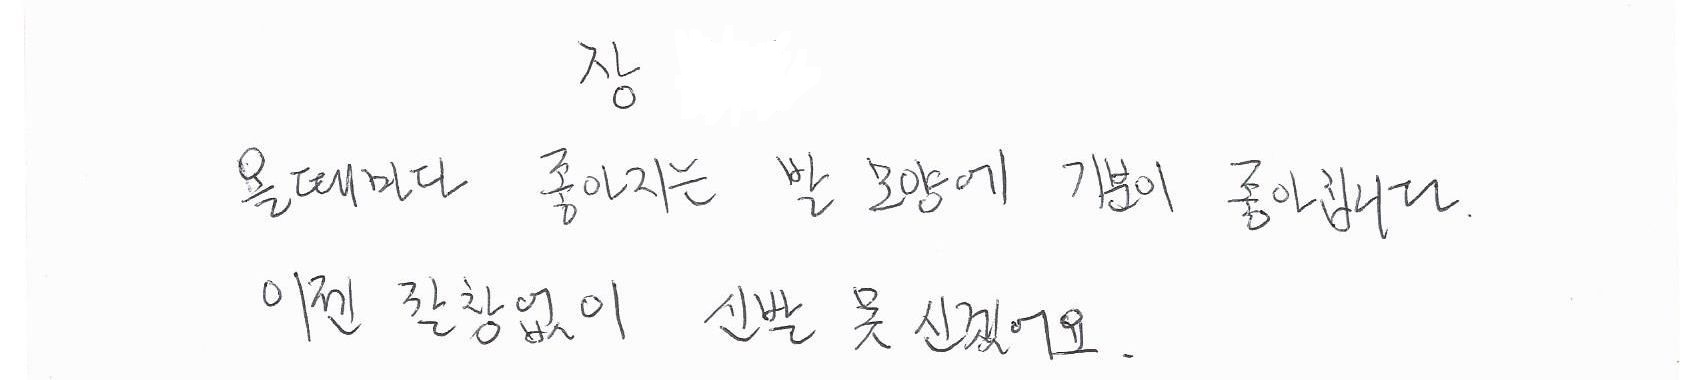 장
올때마다 좋아지는 발 모양에 기분이 좋아집니다.
이젠 깔창없이 신발 못 신겠어요.